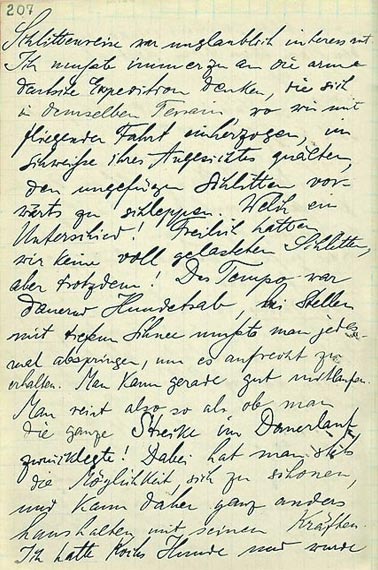 207
Schlittenreise war unglaublich interessant.
Ich mußte immerzu an die arme
deutsche Expedition denken, die sich
in demselben Terrain, wo wir mit
fliegender Fahrt einherzogen, im
Schweiße ihres Angesichtes quälten,
den ungefügen Schlitten vor-
wärts zu schleppen. Welch ein
Unterschied! Freilich hatten
wir keine voll gelasteten Schlitten,
aber trotzdem! Das Tempo war
dauernd Hundetrab, bei Stellen
mit tiefem Schnee mußte man jedes-
mal abspringen, um es aufrecht zu
erhalten. Man kann gerade gut mitlaufen.
Man reist also so als ob man
die ganze Strecke im Dauerlauf
zurücklegte! Dabei hat man stets
die Möglichkeit, sich zu schonen,
und kann daher ganz anders
haushalten mit seinen Kräften.
Ich hatte Kochs Hunde und wurde